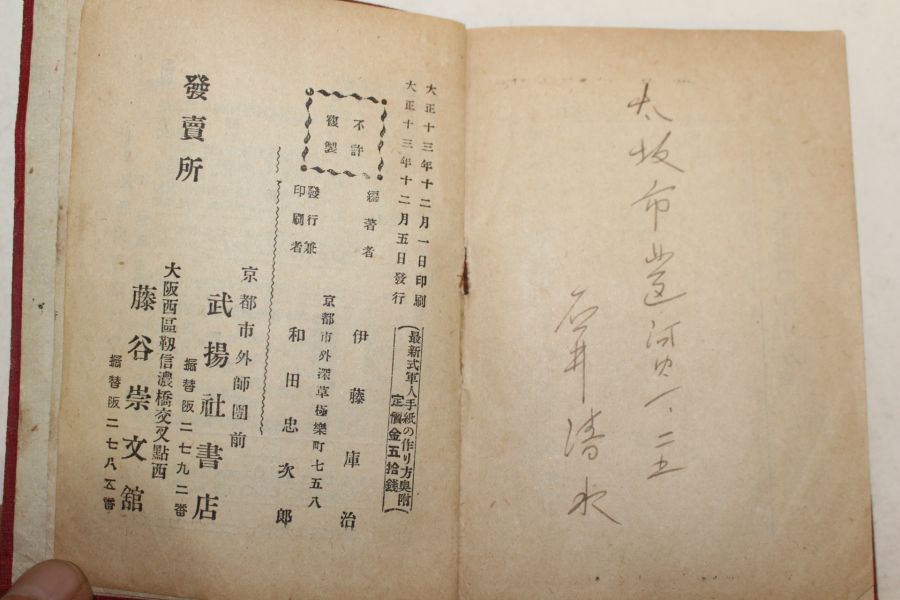 大坂市
石井清水
大正十三年十二月一日印刷
大正十三年十二月五日發行
(最新式軍人手紙の作り方奧附
定價金五拾錢)
不許
複製
編著者 伊藤庫治
京都市外深草極樂町七五八
發行兼
印刷者 和田忠次郎
發賣所
京都市外師團前
武揚社書店
振替阪二七九二番
大阪西區靱信濃橋交叉點西
藤谷崇文舘
振替阪二七八五番